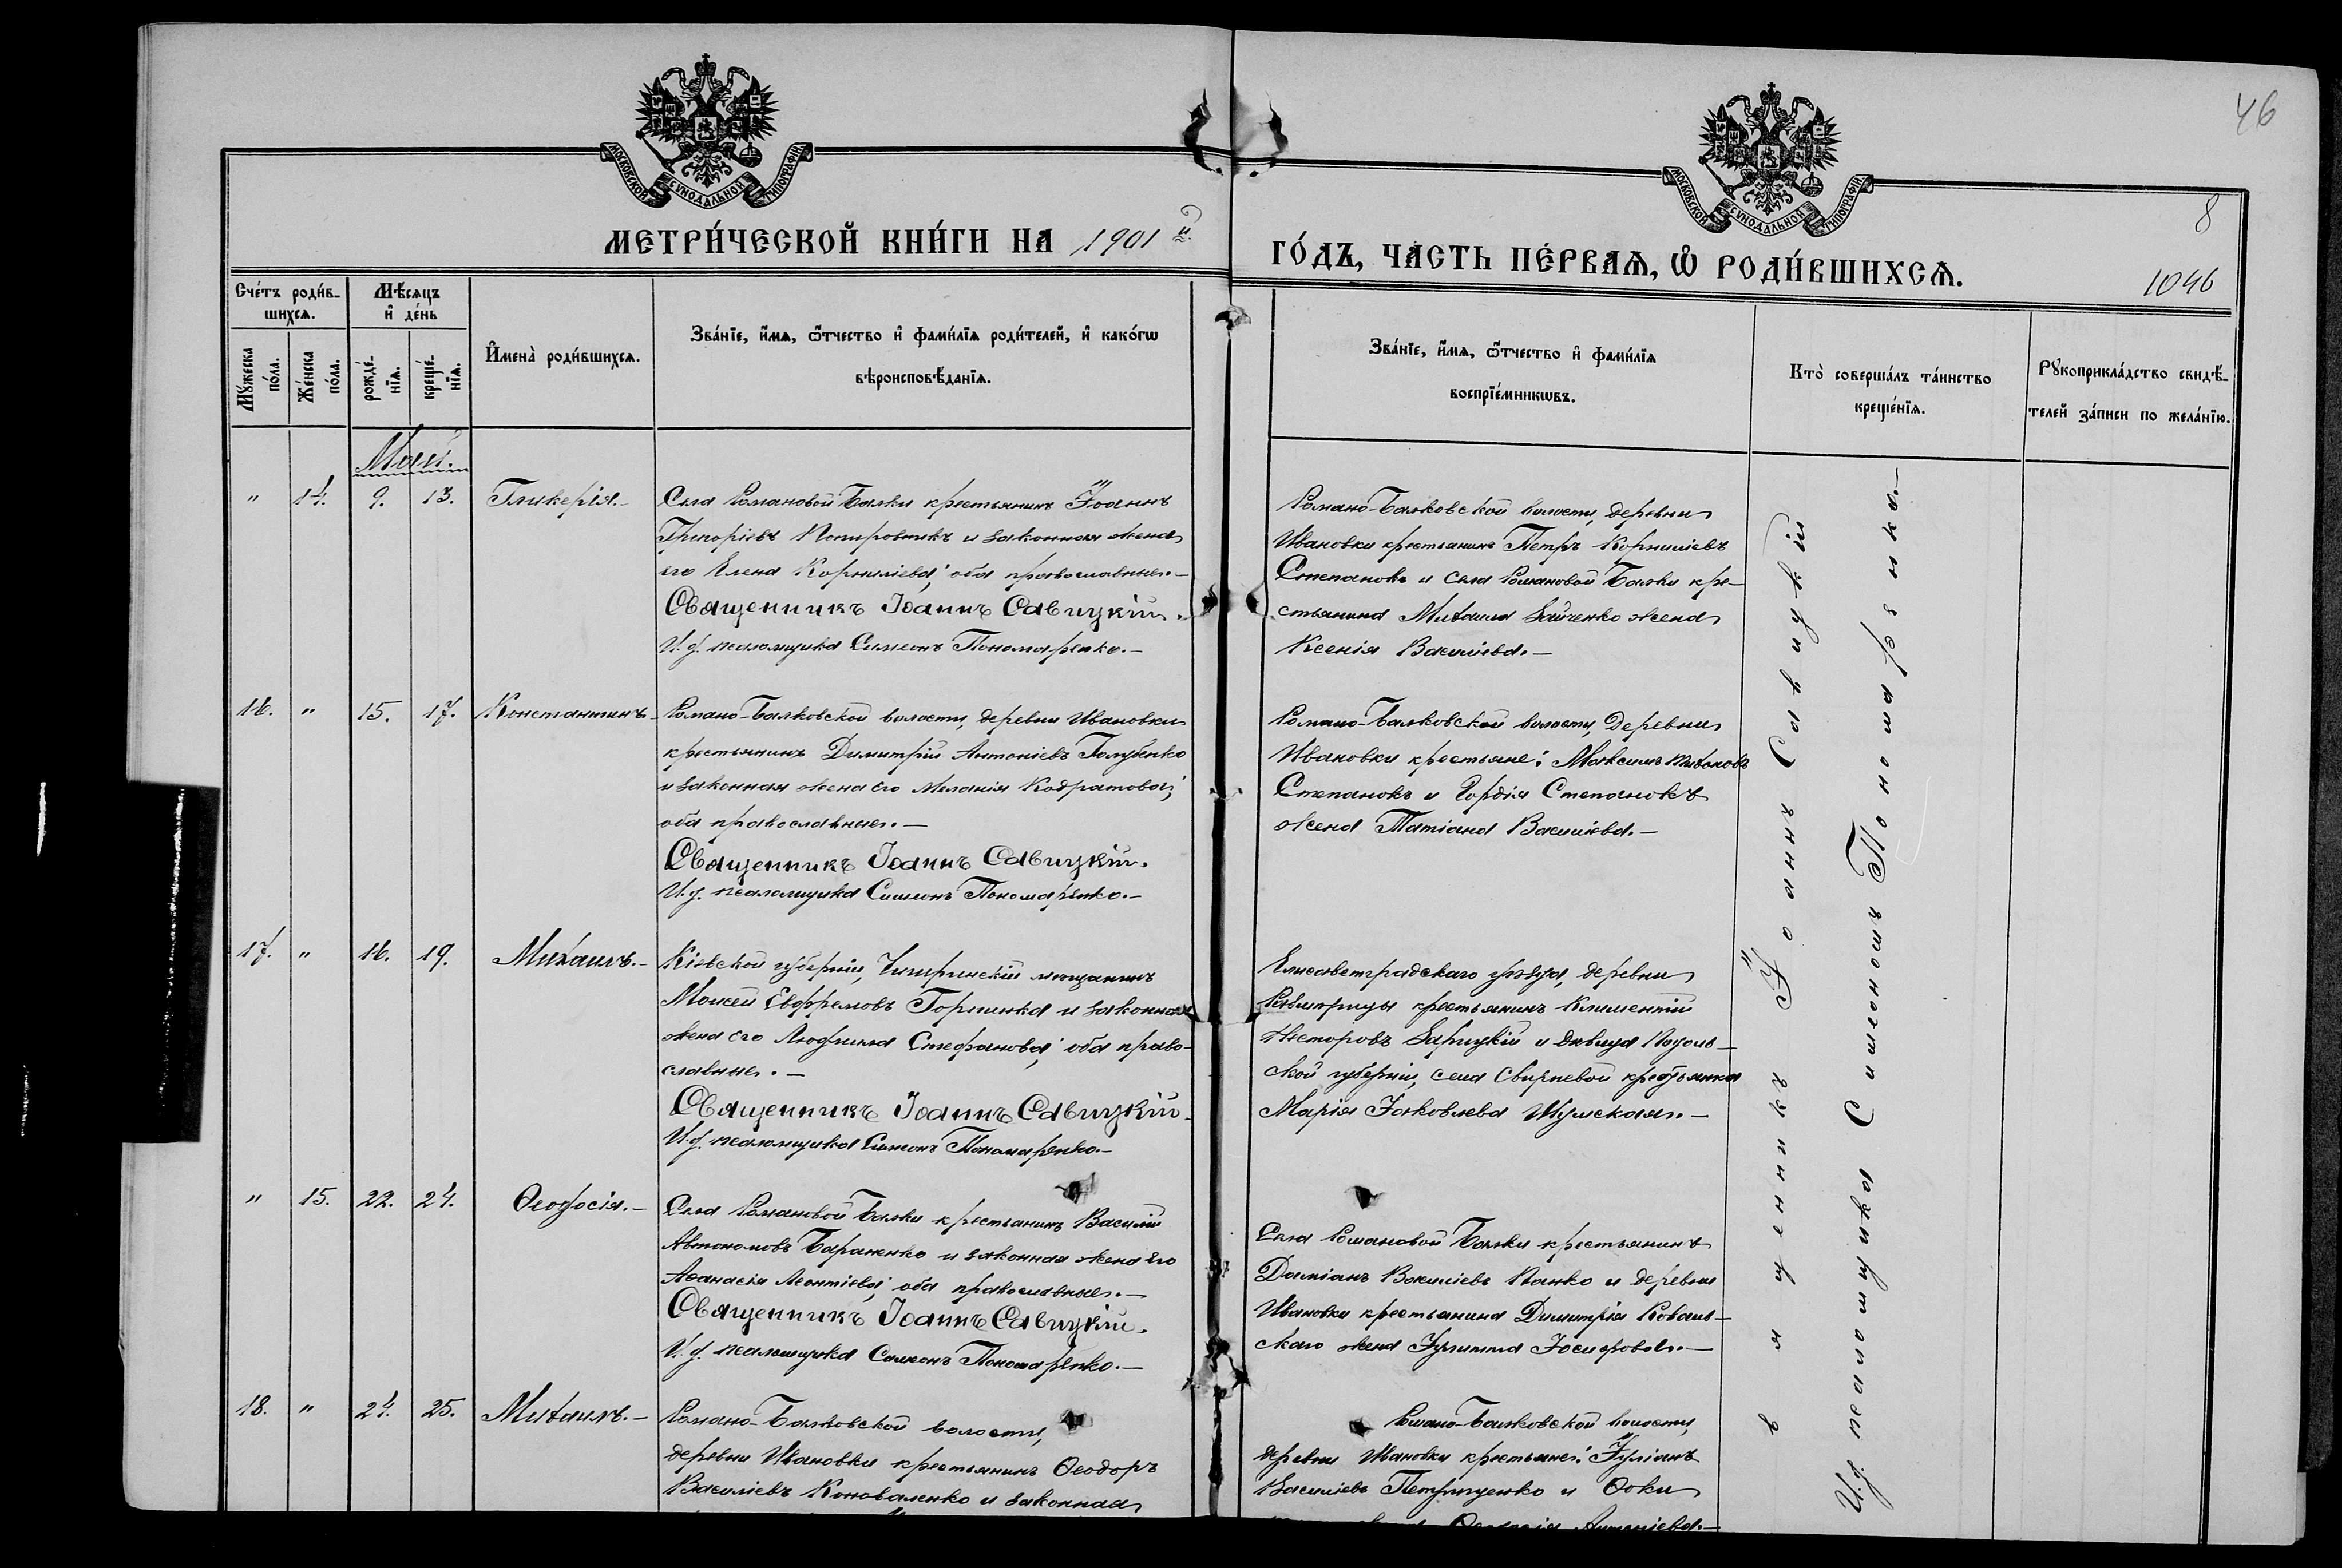 46
8
1046
МОСКОВСКОЙ СѴНОДАЛЬНОЙ ТИПОГРАФІИ
МОСКОВСКОЙ СѴНОДАЛЬНОЙ ТИПОГРАФІИ
МЕТРИ́ЧЕСКОЙ КНИ́ГИ НА 1901 й.
ГО́ДЪ, ЧА́СТЬ ПЕ́РВАѦ, Ѽ РОДИ́ВШИХСѦ.
Сче́тъ роди́в-
шихсѧ.
Мꙋжеска по́ла.
Же́нска по́ла.
Мѣ́сѧцъ
и҆ де́нь
рожде́-
нїѧ.
креще́-
нїѧ.
И҆мена̀ роди́вшихсѧ.
Зва́нїе, и҆́мѧ, ѻ҆́тчество и҆ фами́лїѧ роди́телей, и҆ како́гѡ
вѣроисповѣ́данїѧ.
Зва́нїе, и҆́мѧ, ѻ҆́тчество и҆ фами́лїѧ
воспрїе́мникѡвъ.
Кто̀ соверша́лъ та́инство
креще́нїѧ.
Рꙋкоприкла́дство свидѣ́-
телей за́писи по жела́нїю.
Май.
" 14. 9. 13. Гликерія.-
Села Романовой Балки крестьянинъ Іоаннъ
Григоріевъ и законная жена
его Елена Корниліева; оба православные.-
Священникъ Іоаннъ Савицкій.
И. д. псаломщика Симеонъ Пономаренко.-
Романо-Балковской волости, деревни
Ивановки крестьянинъ Петръ Корниліевъ
Степановъ и села Романовой Балки кре-
стьянина Михаила Зайченко жена
Ксенія Василіева.-
16. " 15. 17. Константинъ-
Романо-Балковской волости, деревни Ивановки
крестьянинъ Димитрій Антоніевъ Голубенко
и законная жена его Меланія Кодратова;
оба православные.-
Священникъ Іоаннъ Савицкій.
И. д. псаломщика Симеонъ Пономаренко.-
Романо-Балковской волости, деревни
Ивановки крестьяне: Максимъ
Степановъ и Гордія Степановъ
жена Татіана Василіева.-
17. " 16. 19. Михаилъ.-
Кіевской губерніи, Чигиринскій мещанинъ
Моисей Евфремовъ и законная
жена его Людмила Стефанова; оба право-
славные.-
Священникъ Іоаннъ Савицкій.
И. д. псаломщика Симеонъ Пономаренко.-
Елисаветградскаго уѣзда, деревни
крестьянинъ Климентій
Несторовъ Зарицкій и дѣвица Подоль-
ской губерніи, села Свирневой крестьянка
Марія Іаковлева Шумская.-
" 15. 22. 24. Ѳеодосія.-
Села Романовой Балки крестьянинъ Василій
Автономовъ Бараненко и законная жена его
Аѳанасія Леонтіева; оба православные.-
Священникъ Іоаннъ Савицкій.
И. д. псаломщика Симеонъ Пономаренко.-
Села Романовой Балки крестьянинъ
Даміанъ Василіевъ Панко и деревни
Ивановки крестьянина Димитрія Коваль-
скаго жена Іулитта Іосифова.-
18. " 24. 25. Михаилъ.-
Романо-Балковской волости,
деревни Ивановки крестьянинъ Ѳеодоръ
Василіевъ Коноваленко и законная
Романо-Балковской волости,
деревни Ивановки крестьяне: Іуліанъ
Василіевъ Петрищенко и Ѳоки
Ѳеодосія Антоніева.-
Священникъ Іоаннъ Савицкій
И. д. псаломщика Симеонъ Пономаренко.-